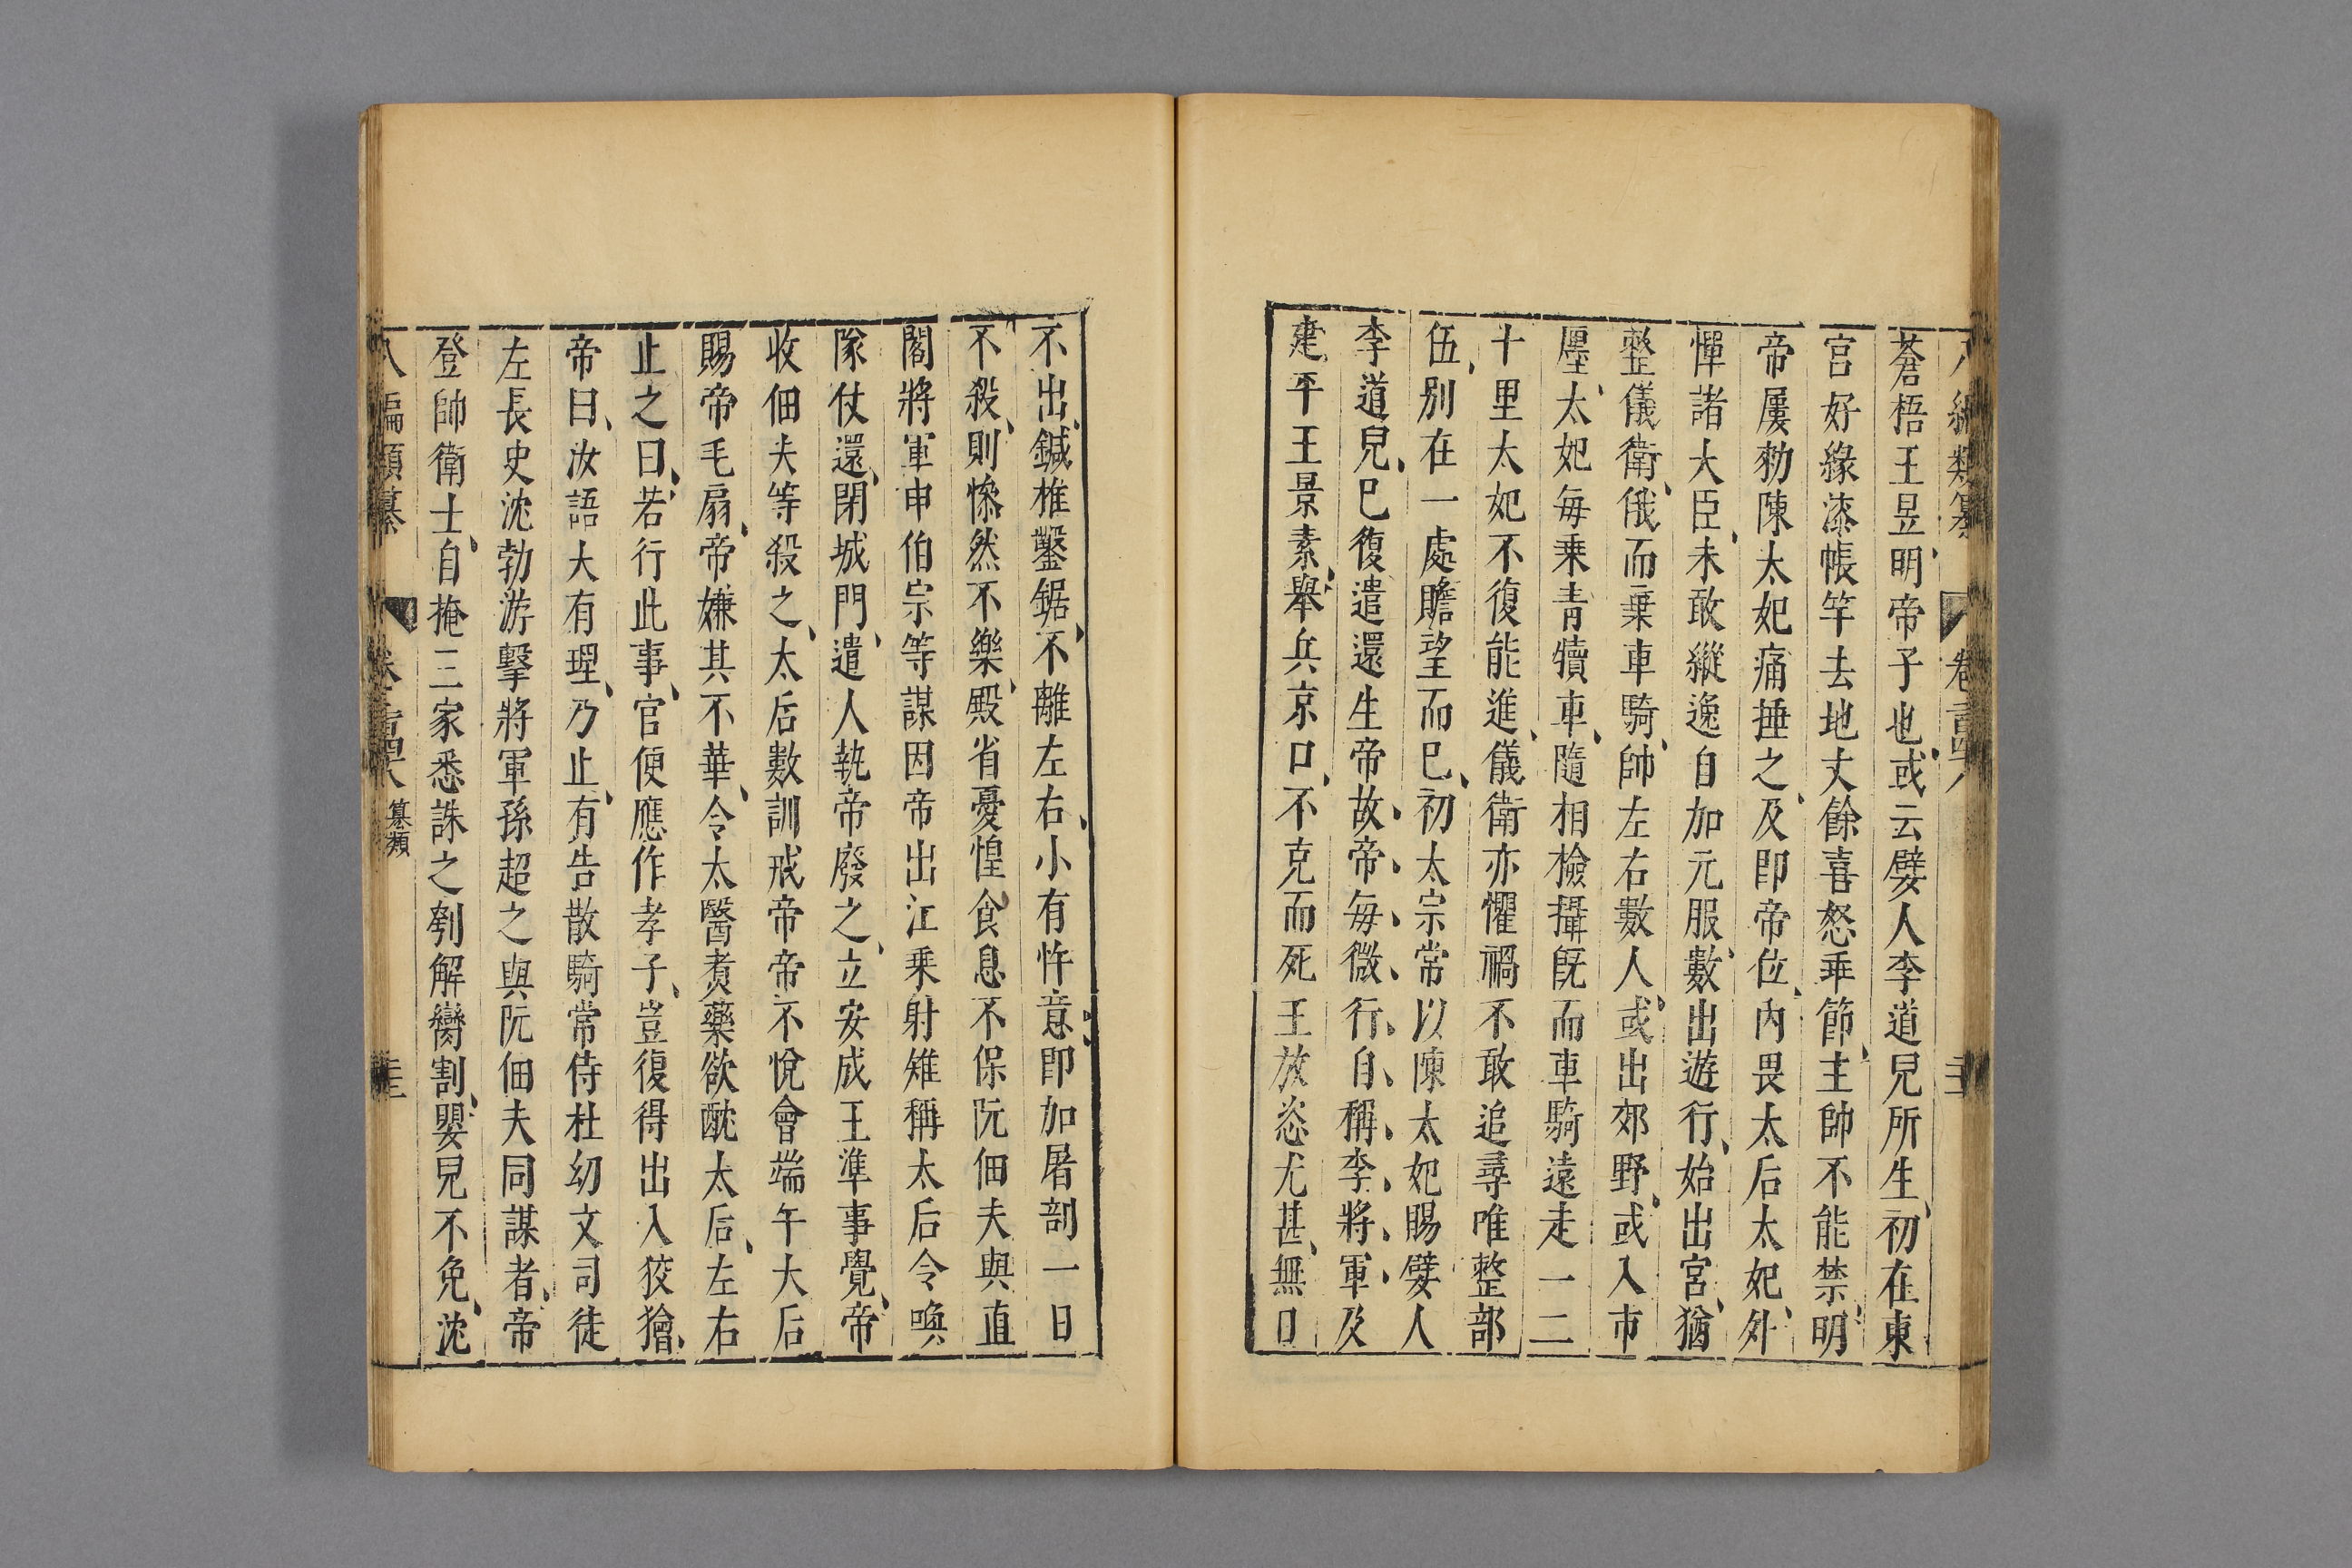 蒼梧王昱明帝子也或云嬖人李道兒所生初在東
宮好緣漆帳竿去地丈餘喜怒乖節主帥不能禁明
帝屢勑陳太妃痛捶之及卽帝位內畏太后太妃外
憚諸大臣未敢縱逸自加元服數出遊行始出宮猶
整儀衛俄而乗車騎帥左右數人或出郊野或入市
廛太妃每乗青犢車隨相檢攝旣而車騎遠走一二
十里太妃不復能進儀衛亦懼禍不敢追尋唯整部
伍別在一處瞻望而巳初太宗常以陳太妃賜嬖人
李道兒巳復遣還生帝故帝每微行自稱李將軍及
建平王景素舉兵京口不克而死王放恣尤甚無日
不出鍼椎鑿鋸不離左右小有忤意卽加屠剖一日
不殺則慘然不樂殿省憂惶食息不保阮佃夫與直
閣將軍申伯宗等謀因帝出江乗射雉稱太后令喚
隊仗還閉城門遣人執帝廢之立安成王準事覺帝
收佃夫等殺之太后數訓戒帝帝不悅會端午太后
賜帝毛扇帝嫌其不華令太醫煑藥欲酖太后左右
止之曰若行此事官便應作孝子豈復得出入狡獪
帝曰汝語大有理乃止有告散騎常侍杜幼文司徒
左長史沈勃游擊將軍孫超之與阮佃夫同謀者帝
登帥衛士自掩三家悉誅之刳解臠割嬰兒不免沈
八編類纂 卷二百四八 纂類